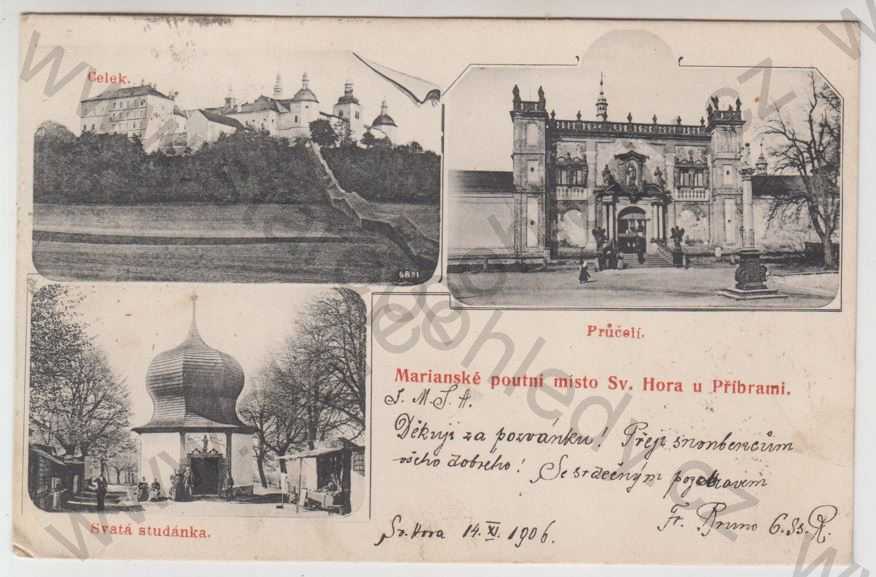 Celek.
6891
Průčelí.
Marianské poutní místo Sv. Hora u Příbrami.
J. M. J. A.
Děkuji za pozvánku! Přeji snoubencům
všeho dobrého! Se srdečným pozdravem
Fr. Bruno C. Ss. R.
Sv. Hora 14. XI. 1906.
Svatá studánka.